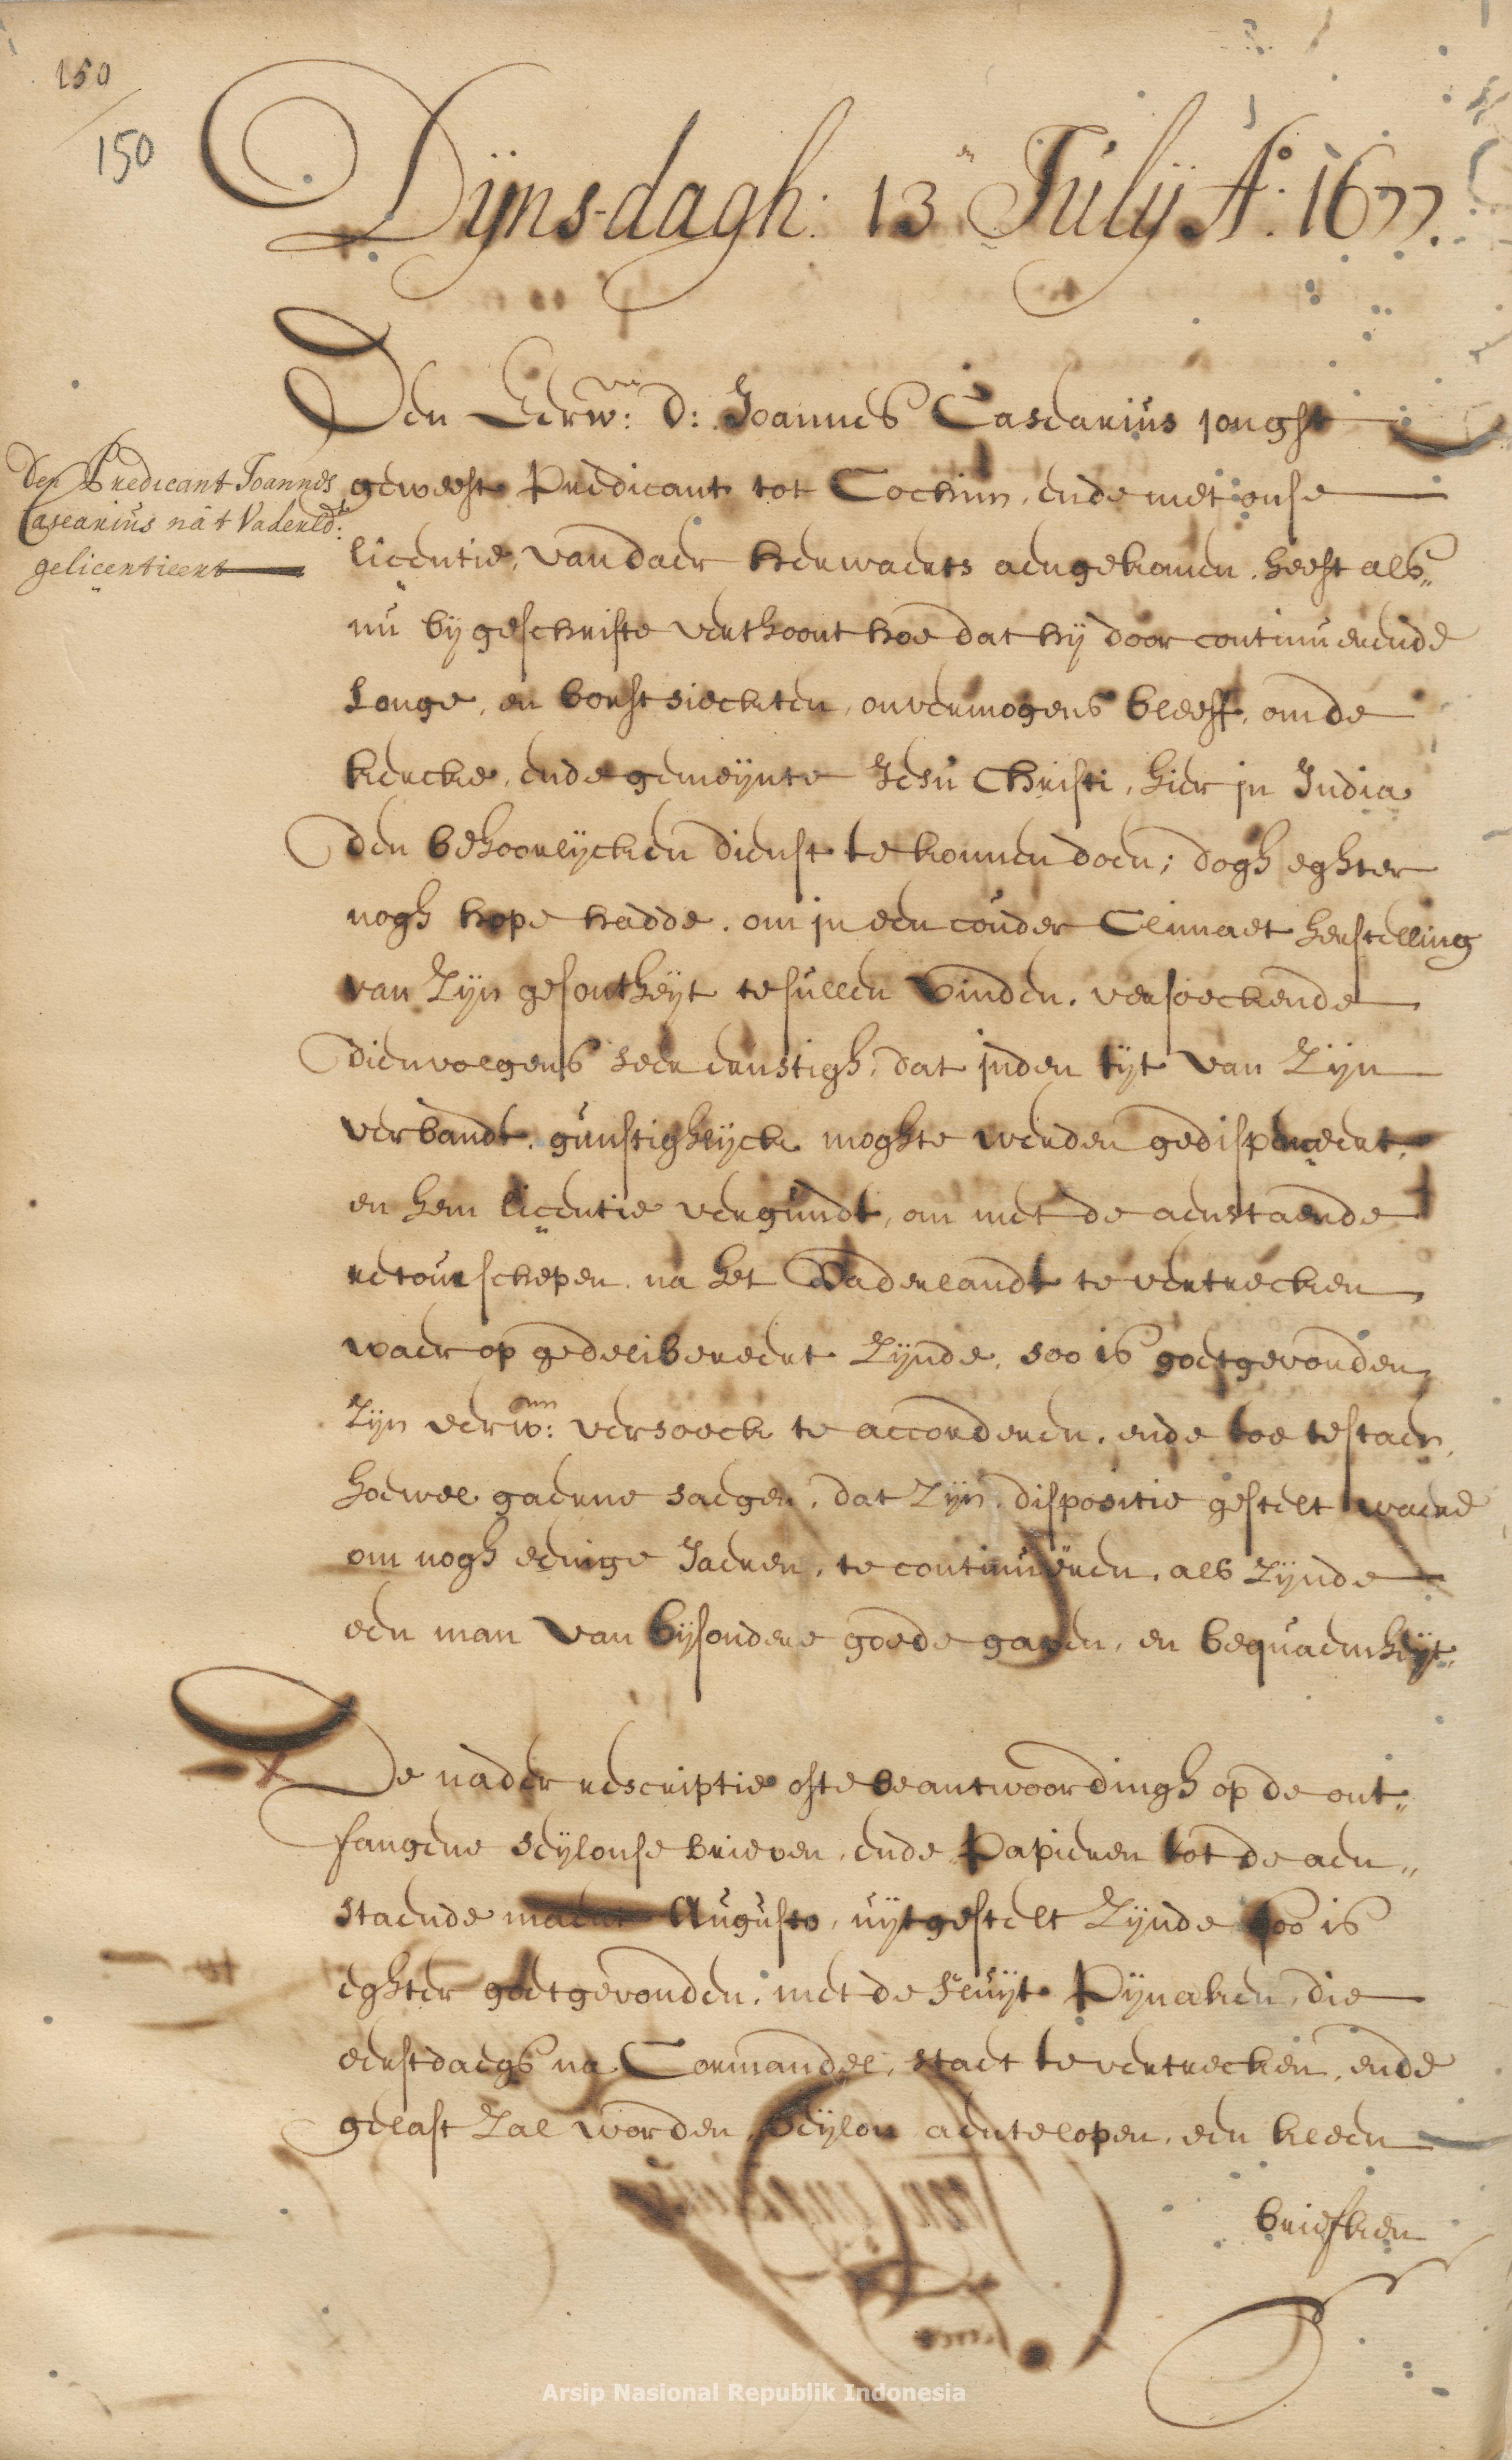 150
150
Dijnsdagh: 13en Julij Ao: 1677.
Den Eerw: d: Joannes Casearius jonghst
Den Predicant Joannes
Casearius nā t Vaderld:
gelicentieert
geweest Predicant tot Cochim, ende met onse
licentie, van daer herwaerts aengekomen, heeft als„
nu bij geschrifte verthoont hoe dat hij door continuerende
longe, en borst sieckten, onvermogens bleeff, om de
kercke, ende gemeijnte Jesu Christi, hier in India
den behoorlijcken dienst te konnen doen; dogh eghter
nogh hope hadde, om in een couder Climaet herstelling
van Zijn gesontheijt te sullen vinden, versoeckende
dienvolgens seer ernstigh, dat in den tijt van Zijn
verbandt, gunstighlijck moghte werden gedispenceert,
en hem licentie vergundt, om met de aenstaende
retourschepen, na het Vaderlandt te vertrecken
waer op gedelibereert Zijnde, soo is goetgevonden
Zijn eerw: versoeck te accorderen, ende toe te staen,
hoewel gaerne sagen, dat Zijn dispositie gestelt waere
om nogh eenige Jaeren, te continuëren, als Zijnde
een man van bijsondere goede gaven, en bequaemheijt.
De nader rescriptie ofte beantwoordingh op de ont„
fangene Ceijlonse brieven, ende Papieren tot de aen„
staende maent Augusto, uijtgestelt Zijnde soo is
eghter goetgevonden, met de fluijt Pijnaken, die
eerstdaegs na Cormandel, staet te vertrecken, ende
gelast Zal worden, Ceijlon aen te lopen, een kleen
briefken
Arsip Nasional Republik Indonesia